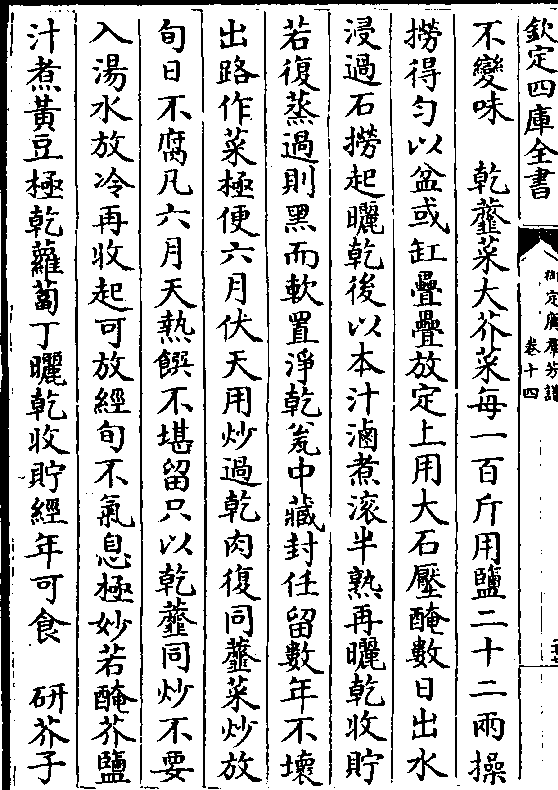 欽定四庫全書
御定廣羣芳譜
卷十四
不變味　乾虀菜大芥菜每一百斤用鹽二十二兩操
撈得勻以盆或缸疊疊放定上用大石壓醃數日出水
浸過石撈起曬乾後以本汁滷煮滚半熟再曬乾收貯
若復蒸過則黑而軟置淨乾瓮中藏封任留數年不壞
出路作菜極便六月伏天用炒過乾肉復同虀菜炒放
旬日不腐凡六月天熱饌不堪留只以乾虀同炒不要
入湯水放冷再收起可放經旬不氣息極妙若醃芥鹽
汁煮黃豆極乾蘿蔔丁曬乾收貯經年可食　研芥子